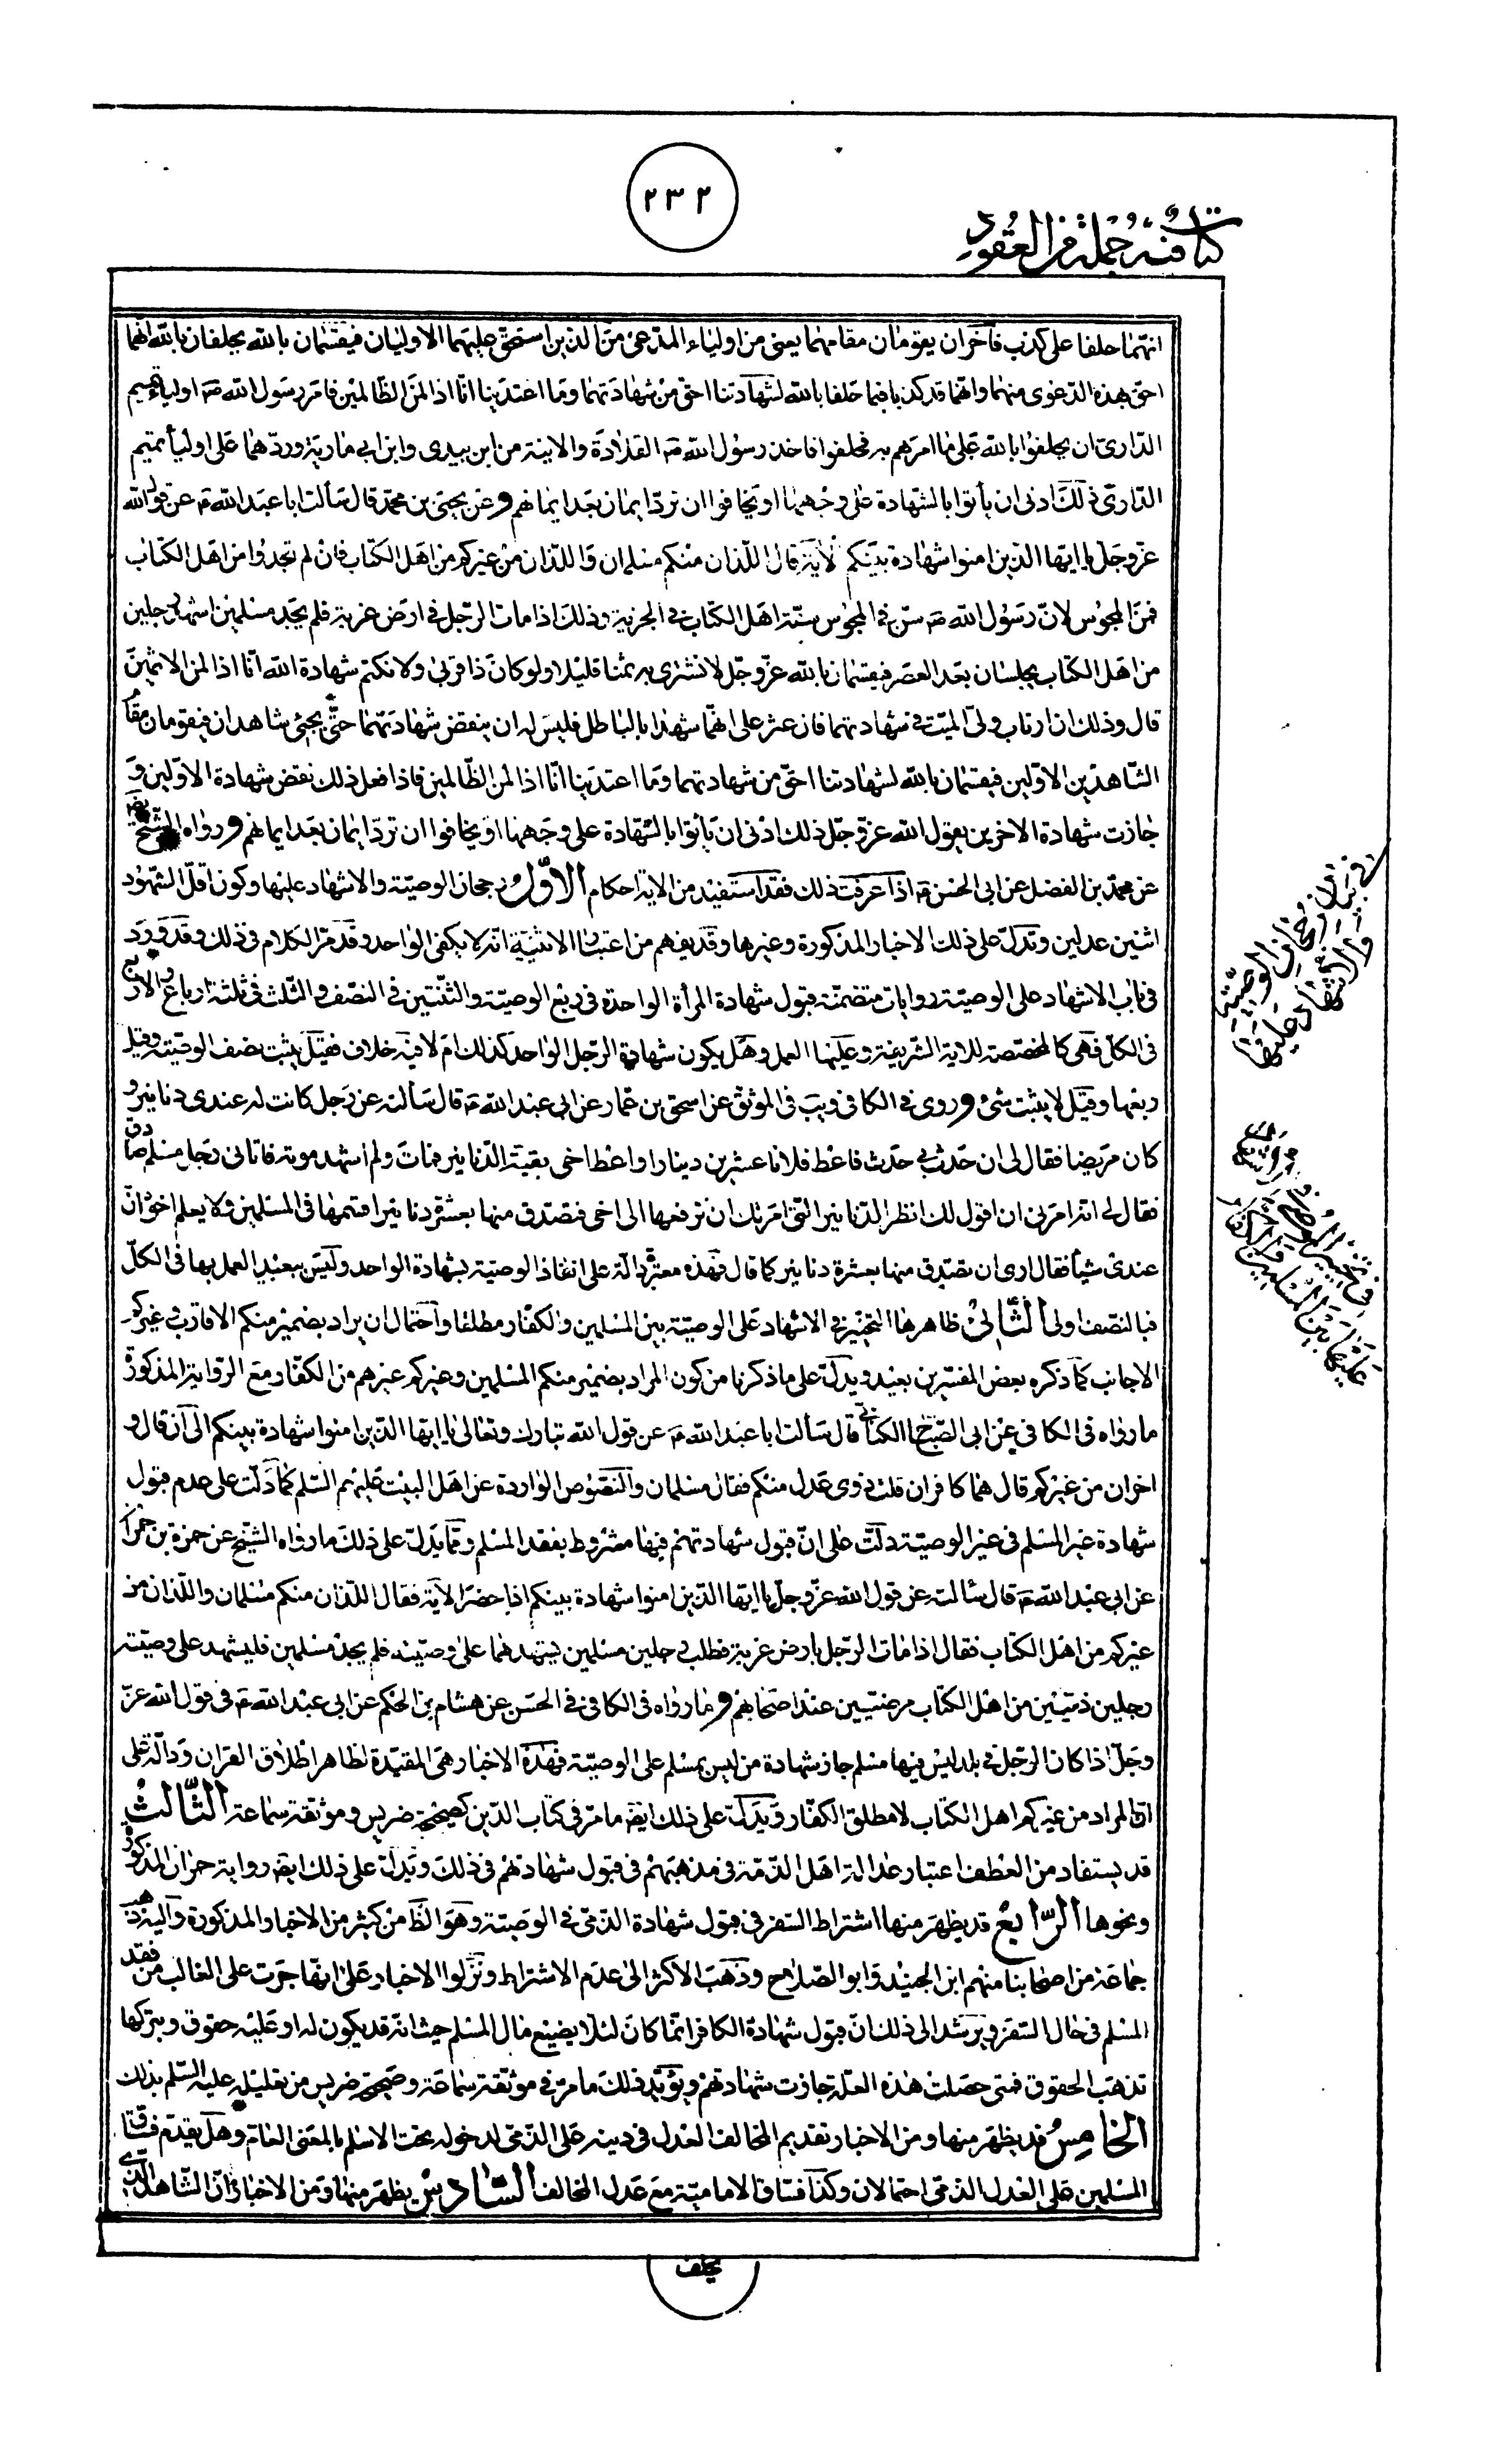 ٢٣٢
كتاب فيه جملة من العقود
انهما حلفا على كذب فآخران يقومان مقامهما يعنى من اولياء المدعى من الذين استحق عليهما الاوليان فيقسمان بالله يحلفان بالله انهما
احق بهذه الدعوى منهما وانهما قد كذبا فيما حلفا بالله لشهادتنا احق من شهادتهما وما اعتدينا انا اذا لمن الظالمين فامر رسول الله صم اولياء تميم
الدارى ان يحلفوا بالله على ما امرهم به فحلفوا فاخذ رسول الله صم القلادة والانية من ابن بيدى وابن ابي مارية وردهما على اولياء تميم
الدارى ذلك ادنى ان يأتوا بالشهادة على وجهها او يخافوا ان ترد ايمان بعد ايمانهم وعن يحيى بن محمد قال سألت ابا عبد الله ع عن قول الله
عز وجل يا ايها الذين امنوا شهادة بينكم الاية قال اللذان منكم مسلمان واللذان من غيركم من اهل الكتاب فان لم تجدوا من اهل الكتاب
فمن المجوس لان رسول الله صم سن في المجوس سنة اهل الكتاب في الجزية وذلك اذا مات الرجل في ارض غربة فلم يجد مسلمين اشهد رجلين
من اهل الكتاب يحلسان بعد العصر فيقسمان بالله عز وجل لا نشترى به ثمنا قليلا ولو كان ذا قربى ولا نكتم شهادة الله انا اذا لمن الاثمين
قال وذلك ان ارتاب ولى الميت في شهادتهما فان عثر على انهما شهدا بالباطل فليس له ان ينقض شهادتهما حتى يجئ شاهدان فيقومان مقام
الشاهدين الاولين فيقسمان بالله لشهادتنا احق من شهادتهما وما اعتدينا انا اذا لمن الظالمين فاذا فعل ذلك نقض شهادة الاولين و
جازت شهادة الاخرين يقول الله عز وجل ذلك ادنى ان يأتوا بالشهادة على وجهها او يخافوا ان ترد ايمان بعد ايمانهم ورواه الشيخ ايضا
عن محمد بن الفضل عن ابى الحسن ع اذا عرفت ذلك فقد استفيد من الاية احكام الاول رجحان الوصية والاشهاد عليها وكون اقل الشهود
اثنين عدلين وتدل على ذلك الاخبار المذكورة وغيرها وقد يفهم من اعتبار الاثنينية انه لا يكفى الواحد وقد مر الكلام فى ذلك وقد ورد
فى باب الاشهاد على الوصية روايات متضمنة قبول شهادة المرأة الواحدة فى ربع الوصية والثنتين فى النصف والثلث فى ثلثة ارباع والاربع
فى الكل فهى كالمخصصة للاية الشريفة وعليها العمل وهل يكون شهادة الرجل الواحد كذلك ام لا فيه خلاف فقيل يثبت نصف الوصية وقيل
ربعها وقيل لا يثبت شئ وروى في الكافى ويب فى الموثق عن اسحق بن عمار عن ابى عبد الله ع قال سألته عن رجل كانت له عندى دنانير و
كان مريضا فقال لى ان حدث بى حدث فاعط فلانا عشرين دينارا واعط اخى بقية الدنانير فمات ولم اشهد موته فاتانى رجل مسلم صادق
فقال لى انه امرنى ان اقول لك انظر الدنانير التى امرتك ان تدفعها الى اخى فتصدق منها بعشرة دنانير اقسمها فى المسلمين ولا يعلم اخوه ان
عندى شيأ فقال ارى ان تصدق منها بعشرة دنانير كما قال فهذه معتبرة دالة على انفاذ الوصية بشهادة الواحد وليس ببعيد العمل بها فى الكل
فبالنصف اولى الثانى ظاهرها التخيير فى الاشهاد على الوصية بين المسلمين والكفار مطلقا واحتمال ان يراد بضمير منكم الاقارب وغيركم
الاجانب كما ذكره بعض المفسرين بعيد ويدل على ما ذكرنا من كون المراد بضمير منكم المسلمين وغيركم غيرهم من الكفار مع الرواية المذكورة
ما رواه فى الكافى عن ابى الصباح الكنانى قال سألت ابا عبد الله ع عن قول الله تبارك وتعالى يا ايها الذين امنوا شهادة بينكم الى ان قال و
اخران من غيركم قال هما كافران قلت ذوى عدل منكم فقال مسلمان والنصوص الواردة عن اهل البيت عليهم السلم كما دلت على عدم قبول
شهادة غير المسلم فى غير الوصية دلت على ان قبول شهادتهم فيها مشروط بفقد المسلم ومما يدل على ذلك ما رواه الشيخ عن حمزة بن حمران
عن ابى عبد الله ع قال سألته عن قول الله عز وجل يا ايها الذين امنوا شهادة بينكم اذا حضر الاية فقال اللذان منكم مسلمان واللذان من
غيركم من اهل الكتاب فقال اذا مات الرجل بارض غربة فطلب رجلين مسلمين يشهدهما على وصيته فلم يجد مسلمين فليشهد على وصيته
رجلين ذميين من اهل الكتاب مرضيين عند اصحابهم وما رواه فى الكافى فى الحسن عن هشام بن الحكم عن ابى عبد الله ع فى قول الله عز
وجل اذا كان الرجل فى بلد ليس فيها مسلم جاز شهادة من ليس بمسلم على الوصية فهذه الاخبار هى المقيدة لظاهر اطلاق القران ودالة على
ان المراد من غيركم اهل الكتاب لا مطلق الكفار ويدل على ذلك ايضا ما مر فى كتاب الدين كصحيحة ضريس وموثقة سماعة الثالث
قد يستفاد من العطف اعتبار عدالة اهل الذمة فى مذهبهم فى قبول شهادتهم فى ذلك ويدل على ذلك ايضا رواية حمران المذكورة
ونحوها الرابع قد يظهر منها اشتراط السفر فى قبول شهادة الذمى فى الوصية وهو الظ من كثير من الاخبار المذكورة واليه ذهب
جماعة من اصحابنا منهم ابن الجنيد وابو الصلاح وذهب الاكثر الى عدم الاشتراط ونزلوا الاخبار على انها جرت على الغالب من فقد
المسلم فى حال السفر ويرشد الى ذلك ان قبول شهادة الكافر انما كان لئلا يضيع مال المسلم حيث انه قد يكون له او عليه حقوق وبتركها
تذهب الحقوق فمتى حصلت هذه العلة جازت شهادتهم ويؤيد ذلك ما مر فى موثقة سماعة وصحيحة ضريس من تعليله عليه السلم بذلك
الخامس قد يظهر منها ومن الاخبار تقديم المخالف العدل فى دينه على الذمى لدخوله تحت الاسلم بالمعنى العام وهل يقدم فساق
المسلمين على العدل الذمى احتمالان وكذا فساق الامامية مع عدل المخالف السادس يظهر منها ومن الاخبار ان الشاهد الذى
يحلف
فى بيان رجحان الوصية
والاشهاد عليها
فى تخيير الموصى فى الاشهاد
عليها بين المسلمين والكفار